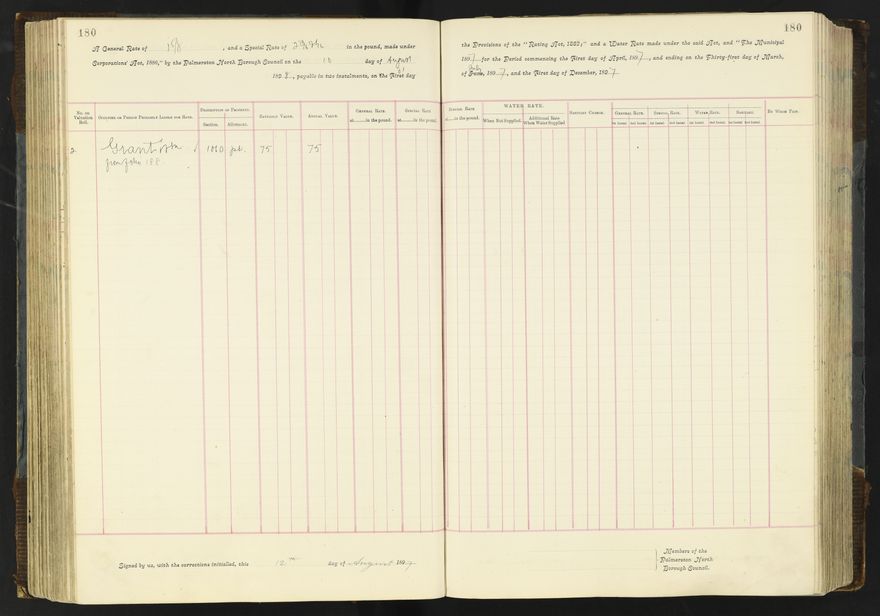 180
A General Rate of , and a Special Rate of in the pound, made under
Corporations' Act, 1886," by the Palmerston North Borough Council on the 10 day of August
189 , payable in two instalments, on the first day
No. on Valuation Roll.
Occupier or Person Primarily Liable for Rate.
Description of Property.
Section.
Allotment.
Rateable Value.
Annual Value.
General Rate
at in the pound.
Special Rate
at in the pound.
2 Grant 1010 75 75
from folio 188
Signed by us, with the corrections initialled, this 12th day of August 1897
180
the Provisions of the "Rating Act, 1882;" and a Water Rate made under the said Act, and "The Municipal
1897 for the Period commencing the First day of April, 1897, and ending on the Thirty-first day of March,
July
of June, 1897, and the First day of December, 1897
Special Rate
at in the pound.
WATER RATE.
When Not Supplied.
Additional Rate When Water Supplied
Sanitary Charge.
General Rate.
Special Rate.
Water Rate.
Sanitary.
1st Instal. 2nd Instal. 1st Instal. 2nd Instal. 1st Instal. 2nd Instal. 1st Instal. 2nd Instal.
By Whom Paid.
Members of the
Palmerston North
Borough Council.